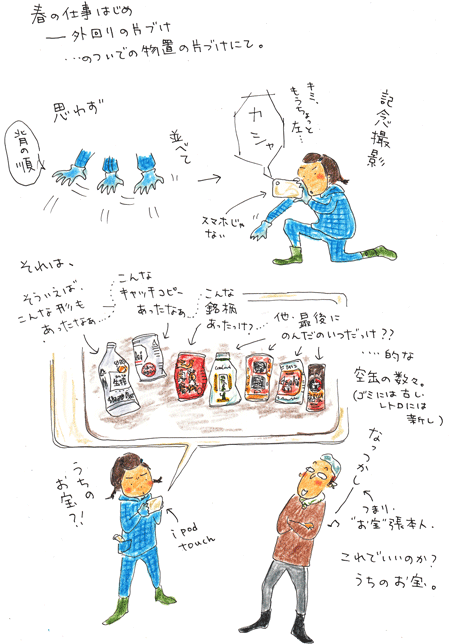 春の仕事はじめ
— 外回りの片づけ
…のついでの物置の片づけにて。
思わず
並べて
背の順
キミ、
もうちょっと
左…
カシャ
記念撮影
スマホじゃ
ない
それは、
そういえば、
こんな形も
あったなぁ…
こんな
キャッチコピー
あったなぁ…
こんな
銘柄
あったっけ?
他・最後に
のんだのいつだっけ??
…的な
空缶の数々。
(ゴミには古し
レトロには
新し)
うちの
お宝?!
ipod
touch
なっつかしー
つまり、
"お宝"張本人。
これでいいのか?
うちのお宝。